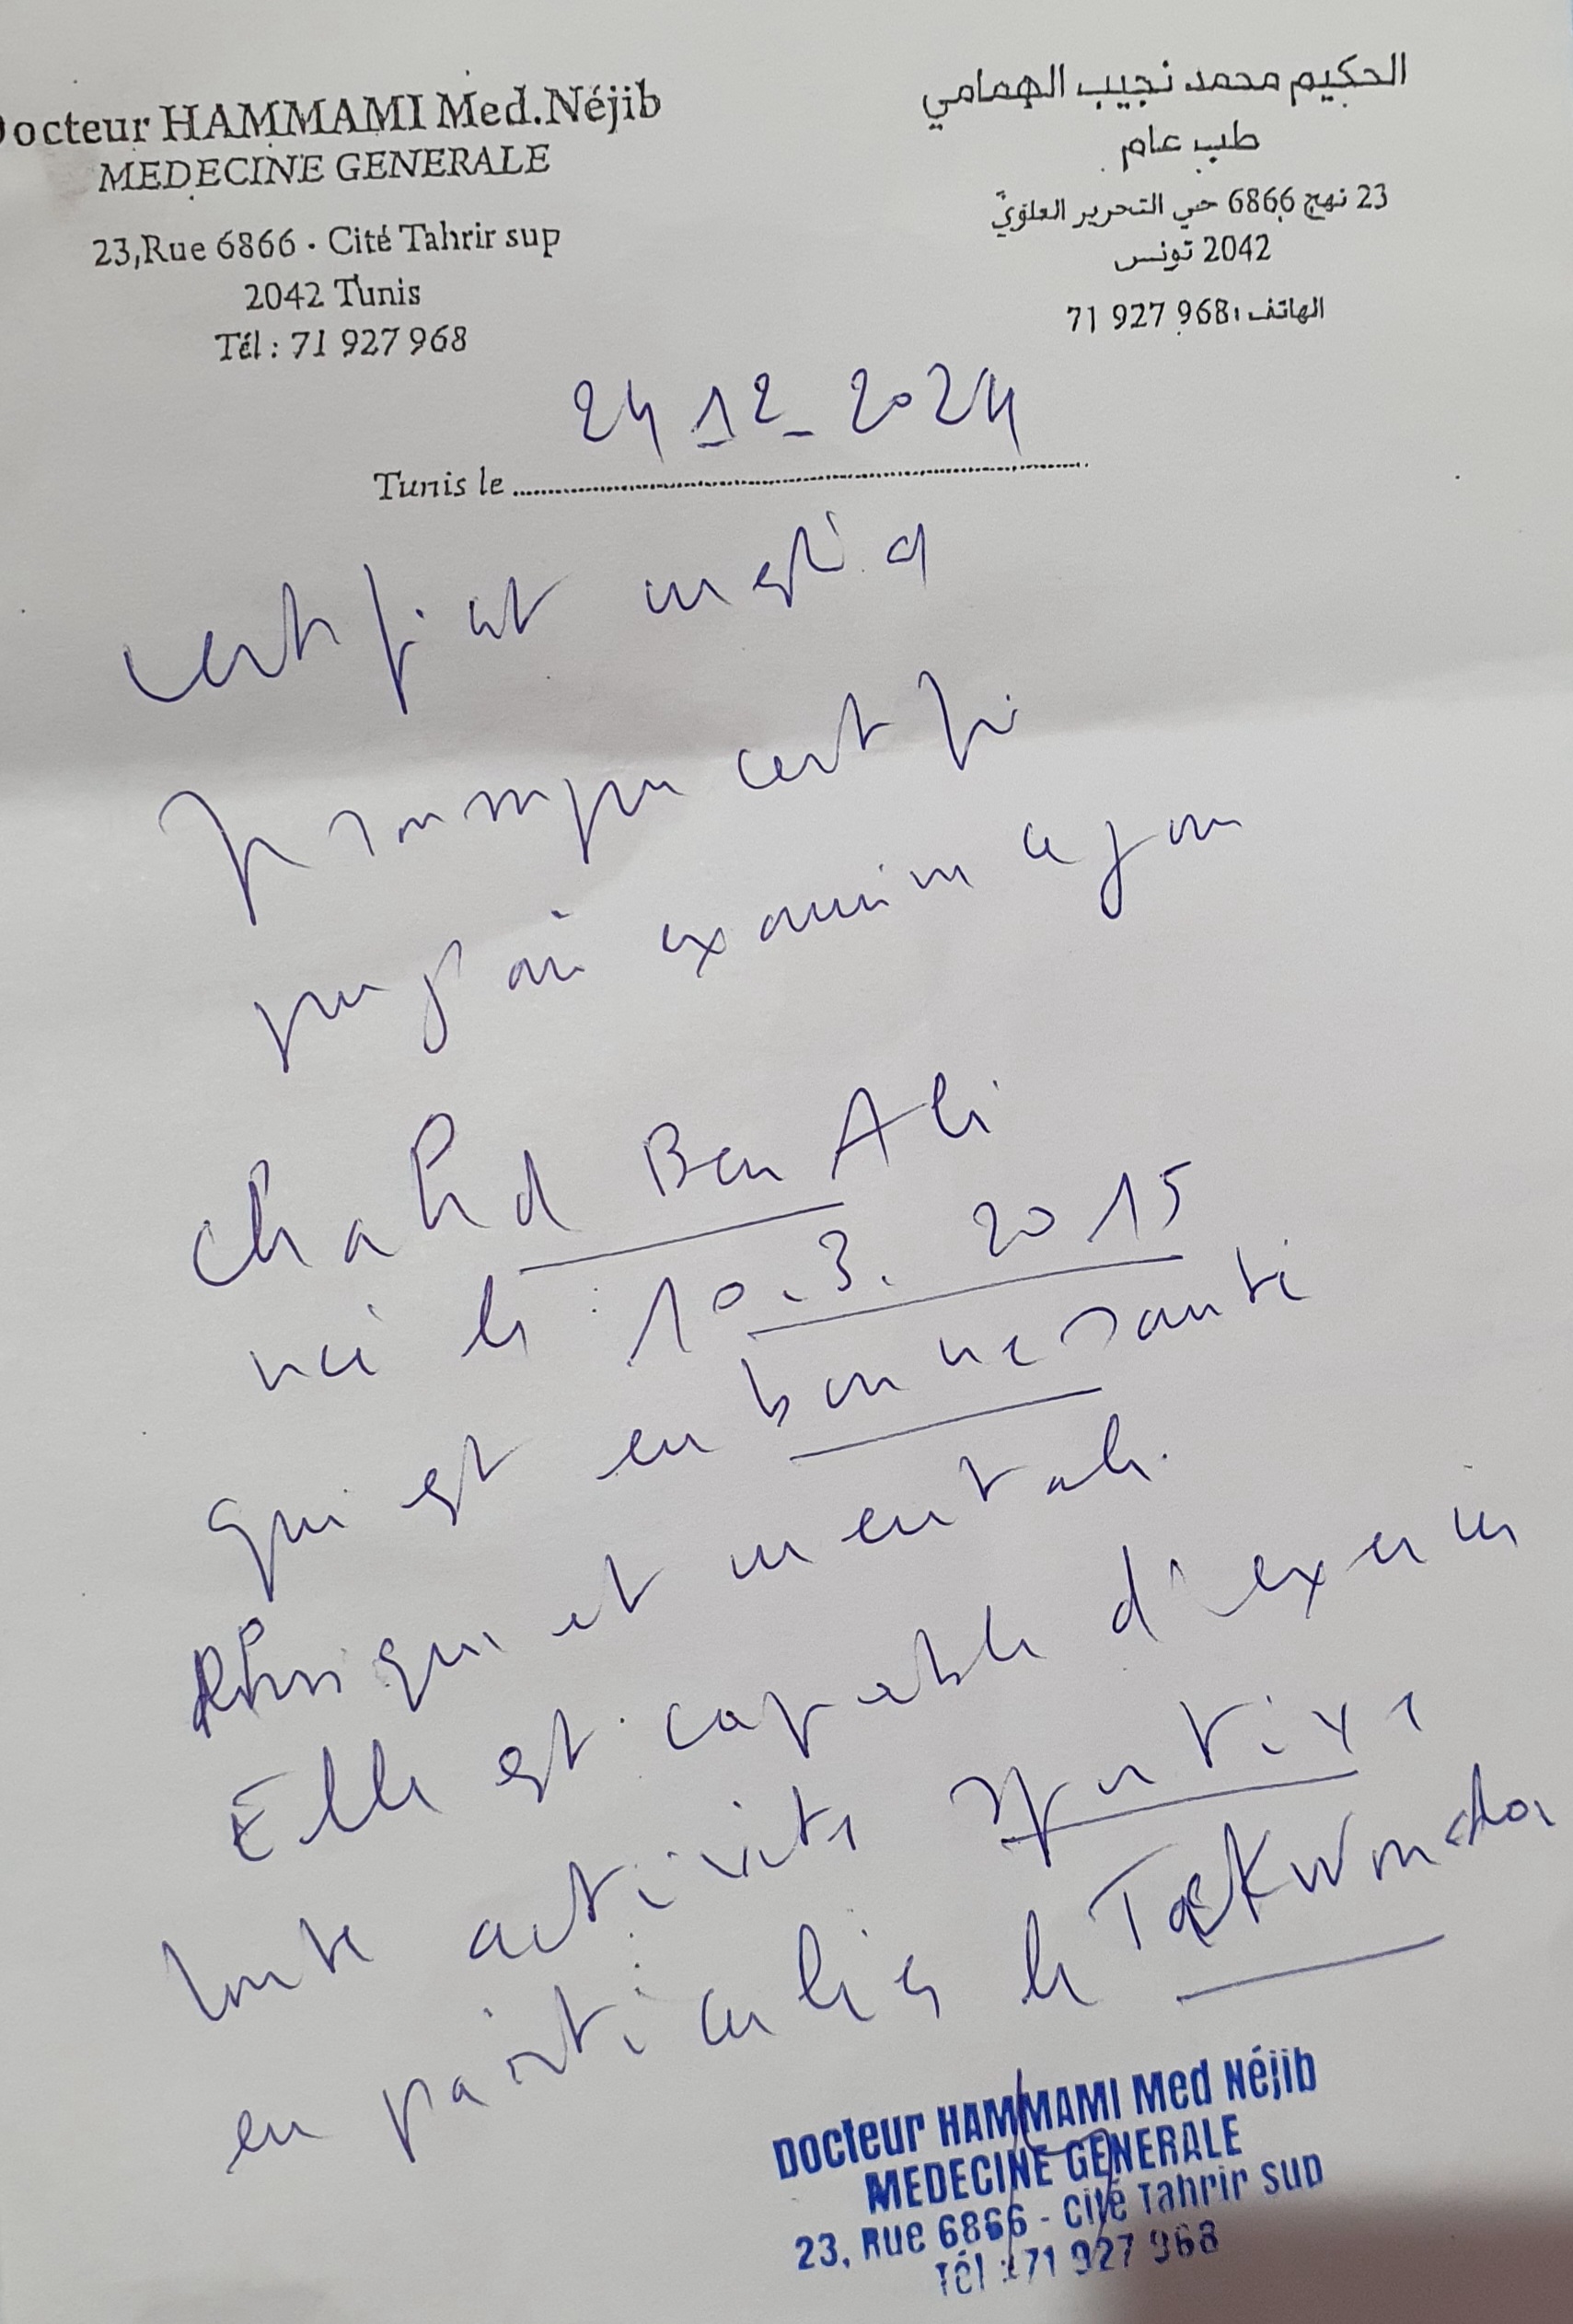 Docteur HAMMAMI Med.Néjib
MEDECINE GENERALE
23,Rue 6866 - Cité Tahrir sup
2042 Tunis
Tél : 71 927 968
الحكيم محمد نجيب الهمامي
طب عام
23 نهج 6866 حي التحرير العلوي
2042 تونس
الهاتف: 71 927 968
Tunis le 24 12_2024
certificat medical
Je soussigné certifie
que j'ai examiné ce jour
Chahd Ben Ali
née le : 10.3.2015
qui est en bonne santé
Physique et mentale.
Elle est capable d'exercer
toute activité sportive
en particulier le Taekwondo
Docteur HAMMAMI Med Néjib
MEDECINE GENERALE
23, Rue 6866 - Cité Tahrir sup
Tél : 71 927 968